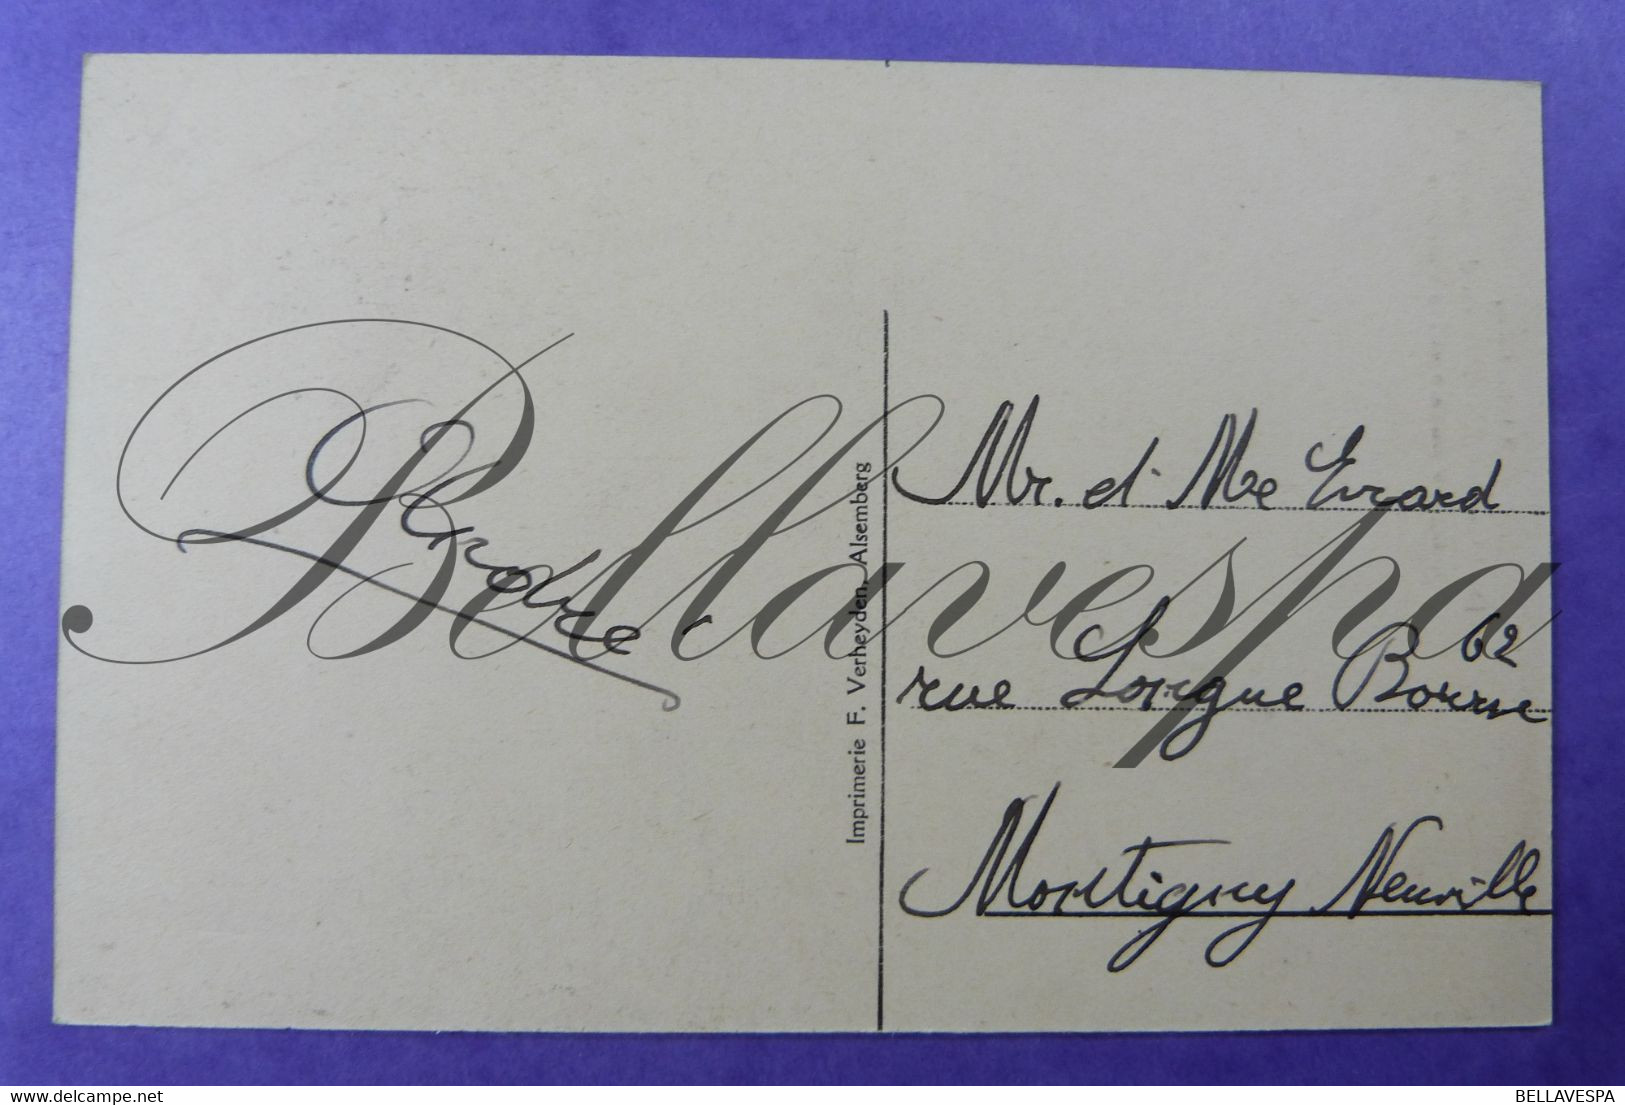 André
Imprimerie F. Verheyden, Alsemberg
Mr. et Me Evrard
62
rue Longue Bourne
Montigny Neuville
Bellavespa
delcampe.net
BELLAVESPA